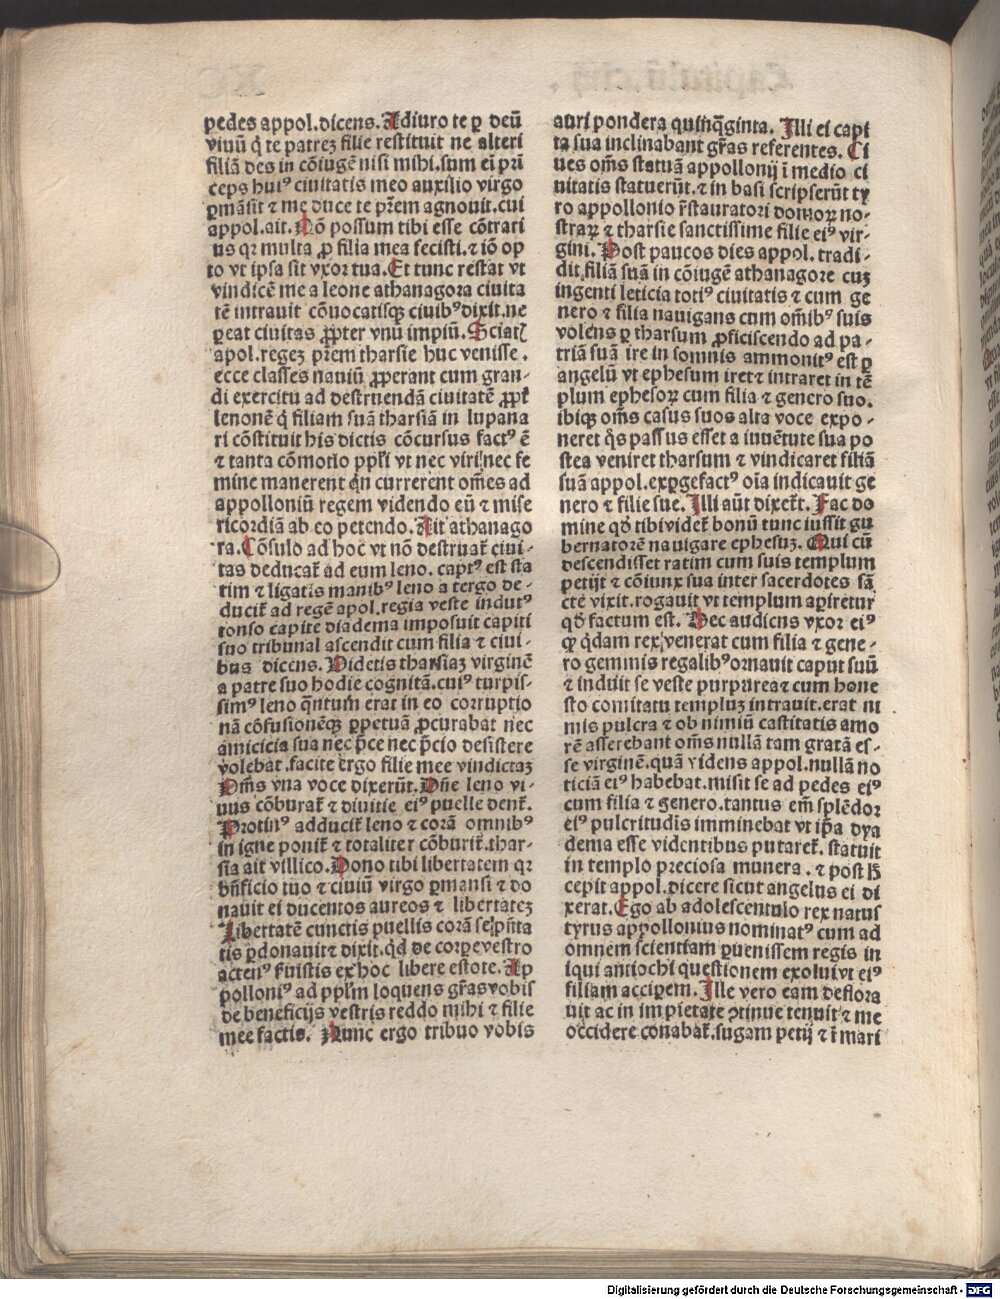 pedes appol.dicens.Adiuro te ꝑ deū
viuū q̇ te patreꝫ filie restituit ne alteri
filiā des in cōiugē nisi mihi.sum ei̅ prī
ceps huiꝰ ciuitatis meo auxilio virgo
ꝑmāsit ⁊ me duce te pr̄em agnouit.cui
appol.ait.Nō possum tibi esse cōtrari
us qꝛ multa ꝓ filia mea fecisti.⁊ iō op
to vt ipsa sit vxor tua.Et tunc restat vt
vindicē me a leone athanagora ciuita
tē intrauit cōuocatisqꝫ ciuibꝰ dixit.ne
ꝑeat ciuitas ꝓpter vnū impiū.Sciatꝭ
apol.regeꝫ pr̄em tharsie huc venisse.
ecce classes nauiū ꝓperant cum gran-
di exercitu ad destruendā ciuitatē ꝓpt̄
lenonē q̇ filiam suā tharsiā in lupana
ri cōstituit his dictis cōcursus factꝰ ē
⁊ tanta cōmotio ppl̄i vt nec viri nec fe
mine manerent qn̄ currerent om̄es ad
appolloniū regem videndo eū ⁊ mise
ricordiā ab eo petendo.Ait athanago
ra.Cōsulo ad hoc vt nō destruat̄ ciui-
tas deducat̄ ad eum leno. captꝰ est sta
tim ⁊ ligatis manibꝰ leno a tergo de-
ducit̄ ad regē apol.regia veste indutꝰ
tonso capite diadema imposuit capiti
suo tribunal ascendit cum filia ⁊ ciui-
bus dicens.Videtis tharsiaꝫ virginē
a patre suo hodie cognitā.cuiꝰ turpis-
simꝰ leno q̄ntum erat in eo corruptio
nā cōfusionēqꝫ ꝑpetuā ꝓcurabat nec
amicicia sua nec p̄ce nec p̄cio desistere
volebat.facite ergo filie mee vindictaꝫ
Om̄s vna voce dixerūt.Dn̄e leno vi-
uus cōburat̄ ⁊ diuitie eiꝰ puelle dent̄.
Protinꝰ adducit̄ leno ⁊ corā omnibꝰ
in igne ponit̄ ⁊ totaliter cōburit̄.thar-
sia ait villico.Dono tibi libertatem qꝛ
bn̄ficio tuo ⁊ ciuiū virgo ꝑmansi ⁊ do
nauit ei ducentos aureos ⁊ libertateꝫ
Libertatē cunctis puellis corā se p̄nta
tis ꝑdonauit ⁊ dixit.qd̄ de corꝑe vestro
actenꝰ fuistis ex hoc libere estote.Ap
polloniꝰ ad ppl̄m loquens gr̄as vobis
de beneficijs vestris reddo mihi ⁊ filie
mee factis. Nunc ergo tribuo vobis
auri pondera quinq̄ginta. Illi ei capi
ta sua inclinabant gr̄as referentes. Ci
ues om̄s statuā appollonij ī medio ci
uitatis statuerūt.⁊ in basi scripserūt ty
ro appollonio r̄stauratori domoꝝ no-
straꝝ ⁊ tharsie sanctissime filie eiꝰ vir-
gini.Post paucos dies appol. tradi-
dit filiā suā in cōiugē athanagore cuꝫ
ingenti leticia totiꝰ ciuitatis ⁊ cum ge
nero ⁊ filia nauigans cum om̄ibꝰ suis
volens ꝑ tharsum ꝓficiscendo ad pa-
triā suā ire in somnis ammonitꝰ est ꝑ
angelū vt ephesum iret⁊ intraret in tē
plum ephesoꝝ cum filia ⁊ genero suo.
ibiqꝫ om̄s casus suos alta voce expo-
neret q̇s passus esset a iuuētute sua po
stea veniret tharsum ⁊ vindicaret filiā
suā appol.exꝑgefactꝰ oīa indicauit ge
nero ⁊ filie sue.Illi aūt dixer̄t.Fac do
mine qd̄ tibi videt̄ bonū tunc iussit gu
bernatorē nauigare ephesuꝫ.Qui cū
descendisset ratim cum suis templum
petijt ⁊ cōiunx sua inter sacerdotes sā
cte vixit.rogauit vt templum aꝑiretur
qd̄ factum est. Hec audiens vxor eiꝰ
ꝙ q̇dam rex venerat cum filia ⁊ gene-
ro gemmis regalibꝰ ornauit caput suū
⁊ induit se veste purpurea⁊ cum hone
sto comitatu templuꝫ intrauit.erat ni
mis pulcra ⁊ ob nimiū castitatis amo
rē asserebant om̄s nullā tam gratā es-
se virginē.quā videns appol.nullā no
ticiā eiꝰ habebat.misit se ad pedes eiꝰ
cum filia ⁊ genero.tantus em̄ splēdor
eiꝰ pulcritudis imminebat vt ip̄a dya
dema esse videntibus putaret̄. statuit
in templo preciosa munera.⁊ post h̄
cepit appol.dicere sicut angelus ei di
xerat.Ego ab adolescentulo rex natus
tyrus appollonius nominatꝰ cum ad
omnem scientiam ꝑuenissem regis in
iqui antiochi questionem exolui vt eiꝰ
filiam acciꝑem.Ille vero eam deflora
uit ac in impietate ꝯtinue tenuit ⁊ me
occidere conabat̄.fugam petij ⁊ ī mari
Digitalisierung gefördert durch die Deutsche Forschungsgemeinschaft - DFG